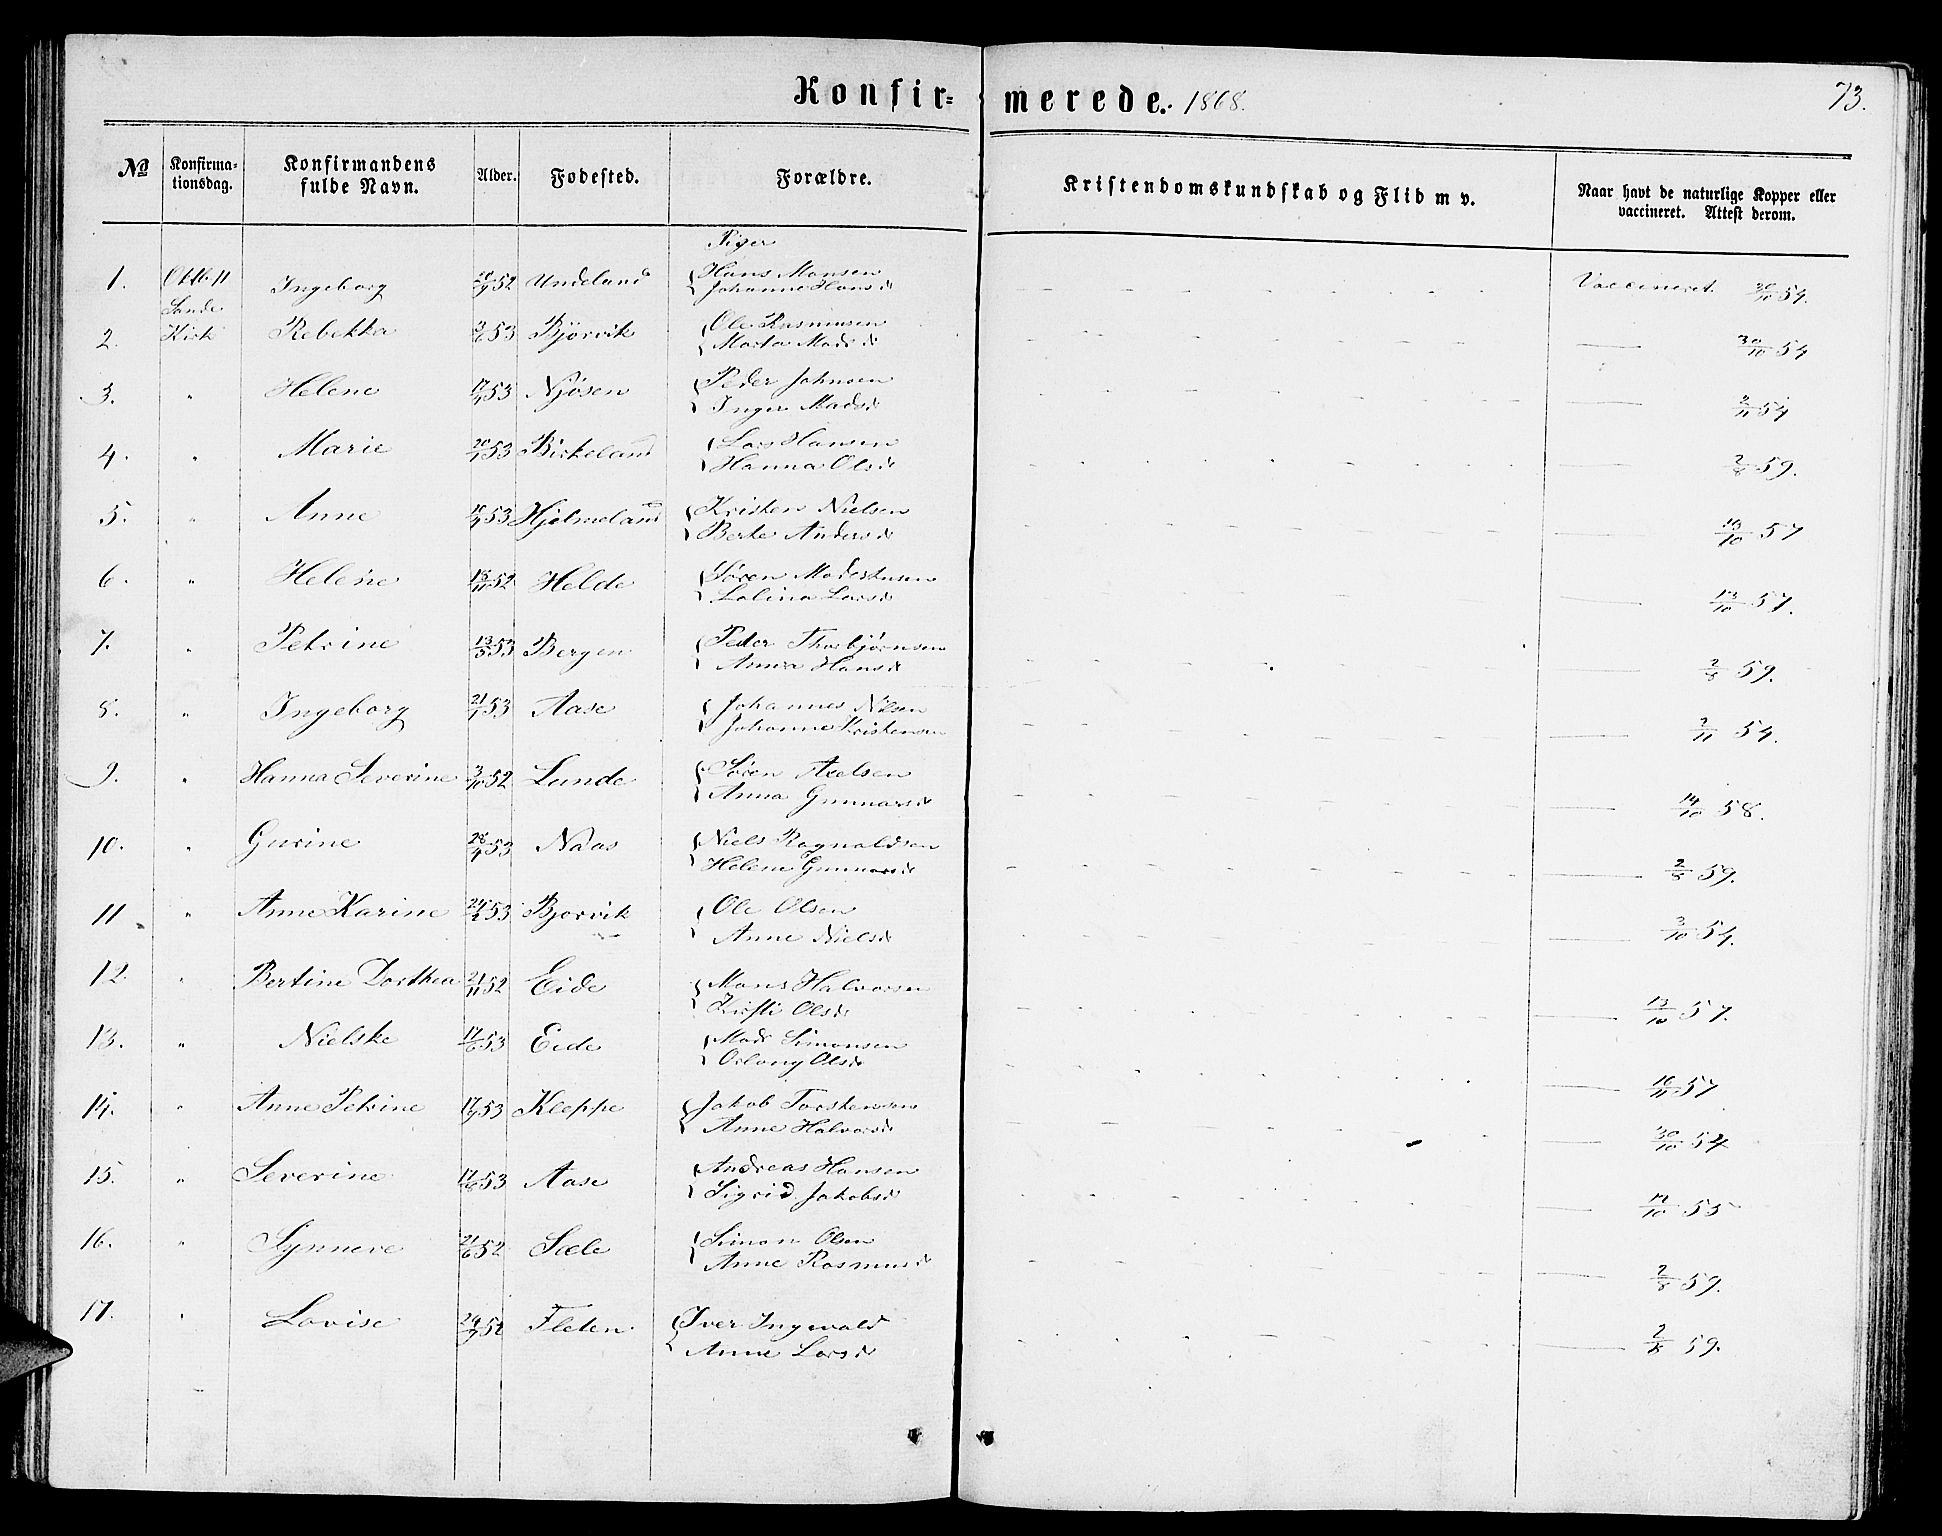 Konfirmerede. 1868. 73.
No Konfirmationsdag. Konfirmandens fulde Navn. Alder. Fødested. Forældre. Kristendomskundskab og Flid m v. Naar havt de naturlige Kopper eller vaccineret. Attest derom.
Piger
1. Oktb 11 Ingeborg 52 Undeland Hans Monsen Vaccineret. 30/10 54.
Sande Johanne Hansd
2. Kirk Rebekka 3/6 53 Bjørvik Ole Rasmusen 30/10 54
Marta Madsd
3. " Helene 53 Njøsen Peder Johnsen 2/11 54
Inger Madsd
4. " Marie 20/1 53 Birkeland Lars Hansen 2/8 59.
Hanna Olsd
5. " Anne 53 Hjelmeland Kristen Nielsen 13/10 57
Berte Andersd
6. " Helene 52 Helde Søren Modestusen 13/10 57.
Lalina Larsd
7. " Petrine 13/5 53 Bergen Peder Thorbjørnsen 2/8 59.
Anna Hansd
8. " Ingeborg 21/1 53 Aase Johannes Nilsen 2/11 54.
Johanne Kristensen
9. " Hanna Severine 3/10 52 Lunde Søren Axelsen 14/10 58.
Anna Gunnarsd
10. " Gurine 28/4 53 Naas Niels Ragnaldsen 2/8 59.
Helene Gunnarsd
11 " Anne Karine 53 Bjorvik Ole Olsen 3/10 54.
Anne Nielsd
12. " Bertine Dorthea 21/11 52 Eide Mons Halvorsen 13/10 57.
Kirsti Olsd
13. " Nielske 17/6 53 Eide Mads Simonsen 16/11 57
Oslang Olsd
14. " Anne Petrine 17/9 53 Kleppe Jakob Torstensen 30/10 54
Anne Halvorsd
15. " Severine 17/8 53 Aase Andreas Hansen 12/10 55
Sigrid Jakobsd
16. " Synneve 21/6 52 Sæle Simon Olsen 2/8 59.
Anne Rasmusd
17. " Lovise 29/9 52 Fleten Iver Ingvald 2/8 59.
Anne Larsd